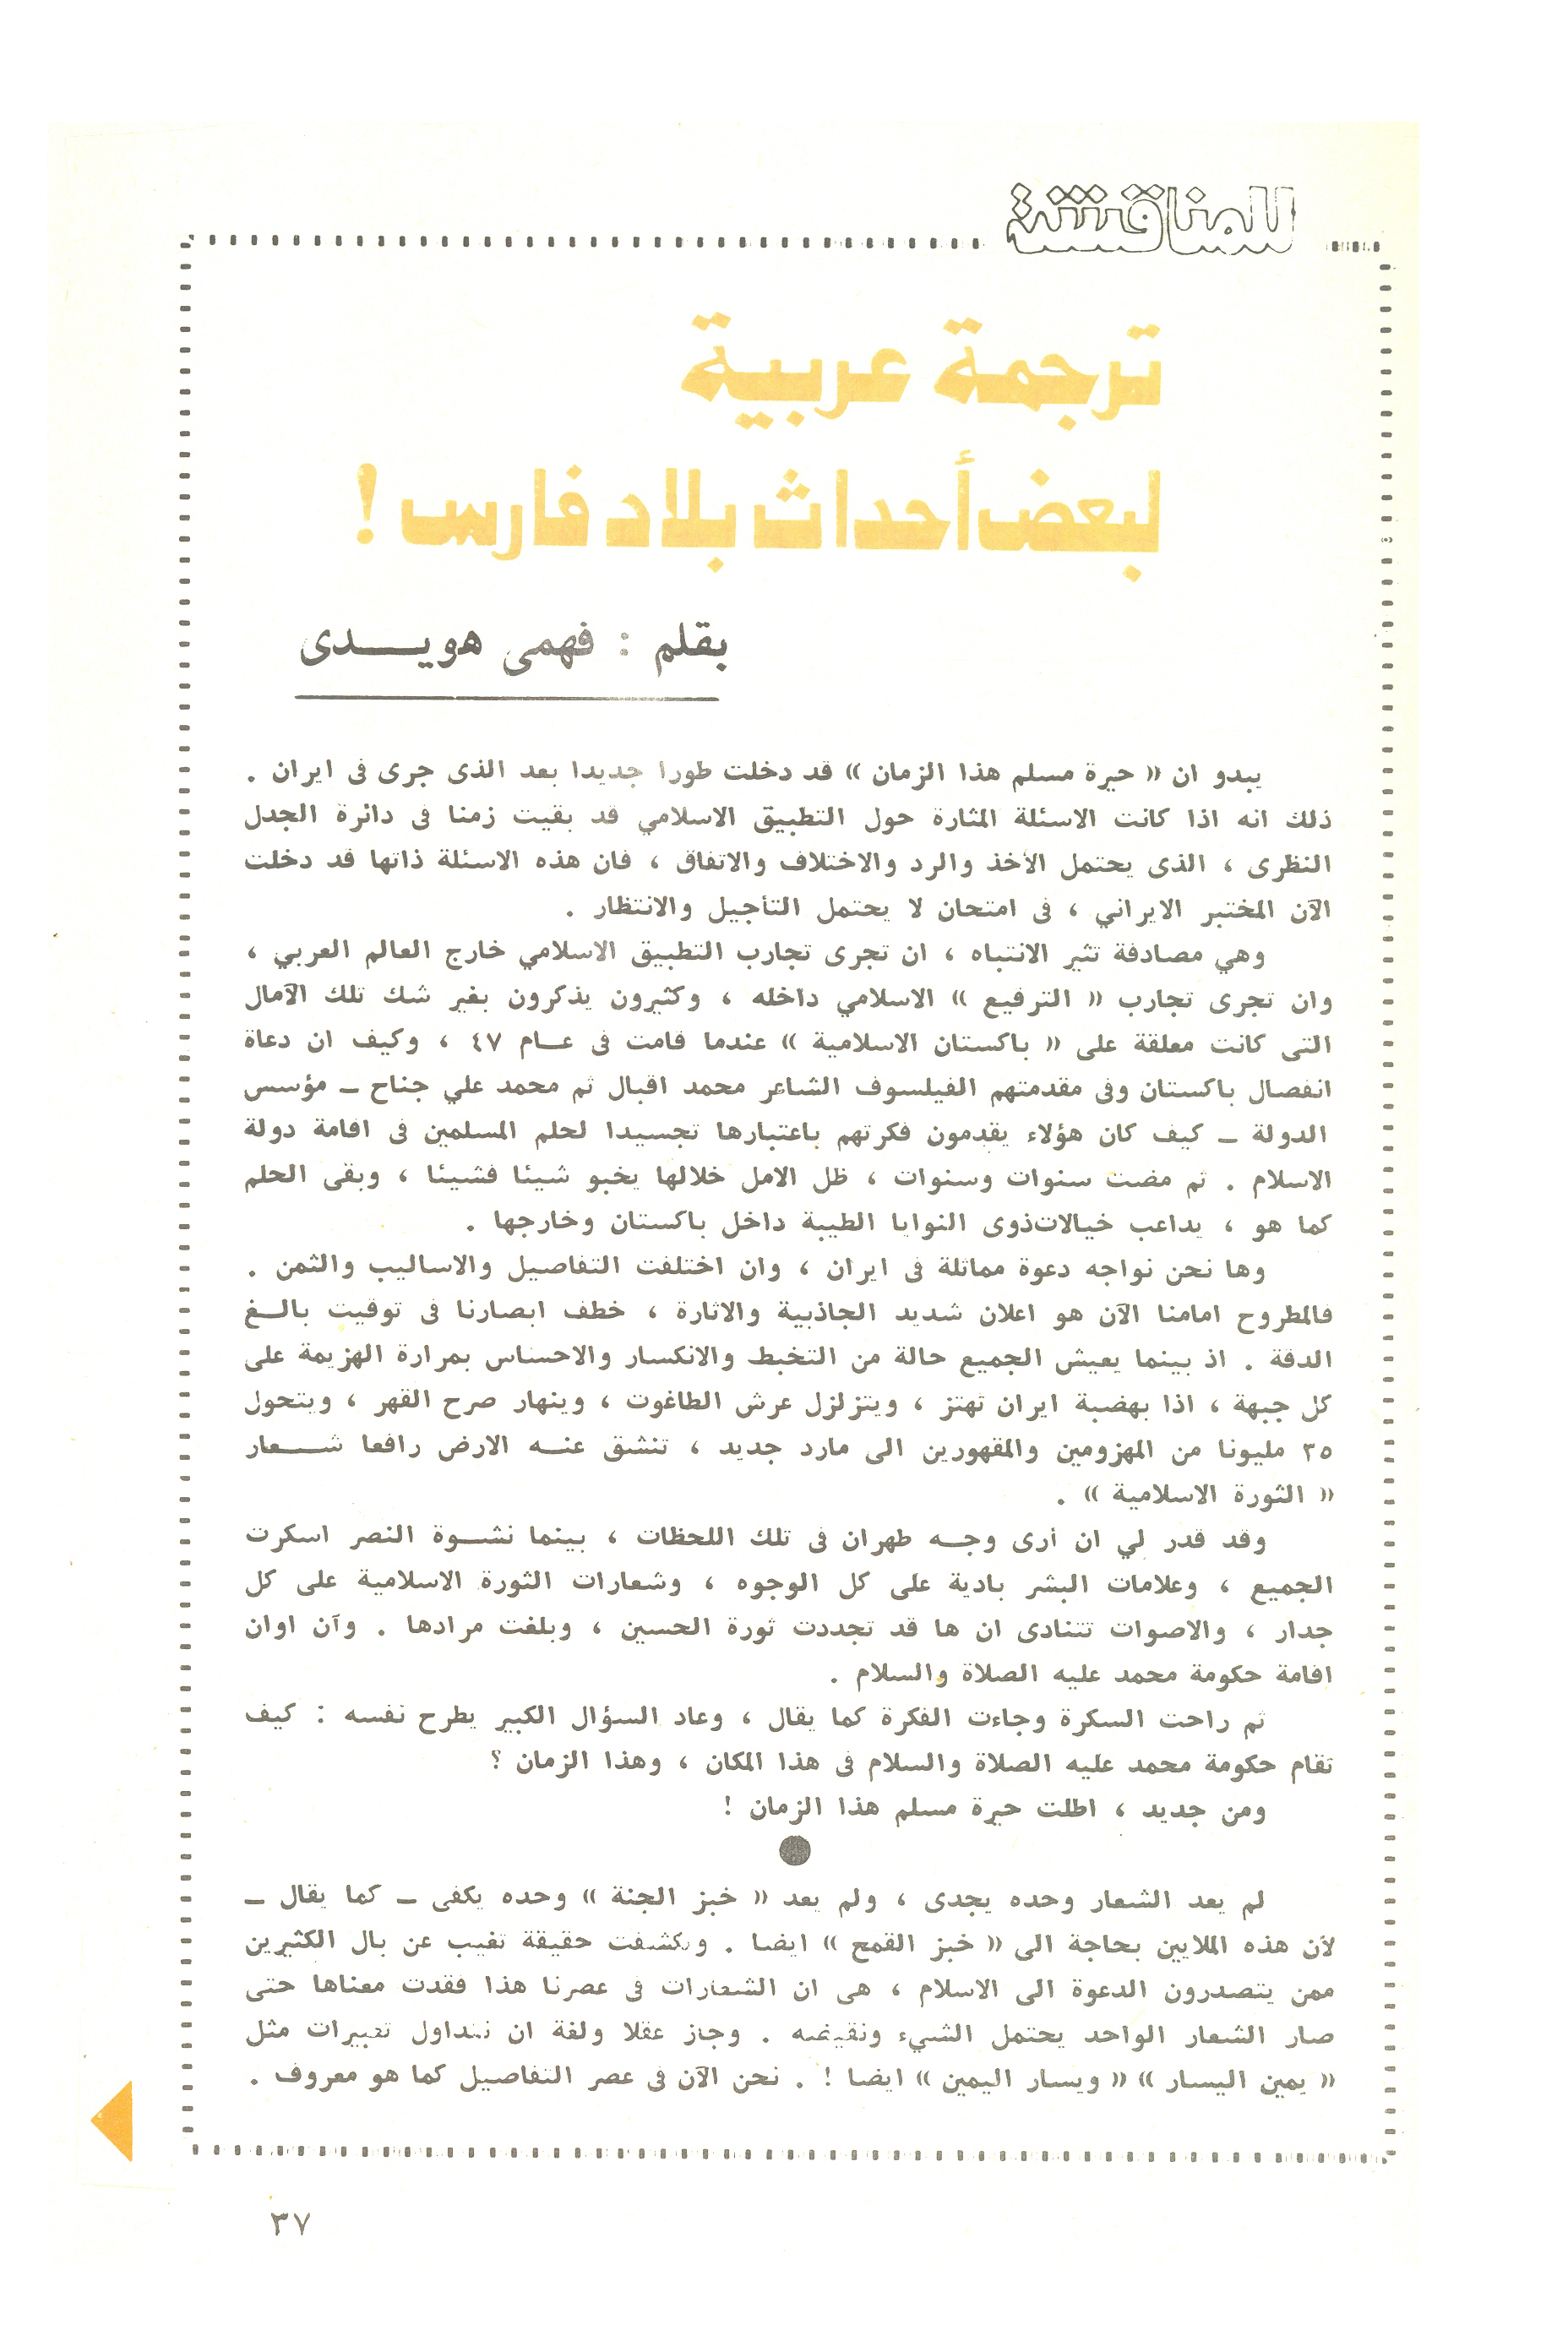 للمناقشة
ترجمة عربية
لبعض أحداث بلاد فارس !
بقلم : فهمى هويــدى
يبدو ان « حيرة مسلم هذا الزمان » قد دخلت طورا جديدا بعد الذى جرى فى ايران .
ذلك انه اذا كانت الاسئلة المثارة حول التطبيق الاسلامي قد بقيت زمنا فى دائرة الجدل
النظرى ، الذى يحتمل الأخذ والرد والاختلاف والاتفاق ، فان هذه الاسئلة ذاتها قد دخلت
الآن المختبر الايراني ، فى امتحان لا يحتمل التأجيل والانتظار .
وهي مصادفة تثير الانتباه ، ان تجرى تجارب التطبيق الاسلامي خارج العالم العربي ،
وان تجرى تجارب « الترقيع » الاسلامي داخله ، وكثيرون يذكرون بغير شك تلك الآمال
التى كانت معلقة على « باكستان الاسلامية » عندما قامت فى عــام ٤٧ ، وكيف ان دعاة
انفصال باكستان وفى مقدمتهم الفيلسوف الشاعر محمد اقبال ثم محمد علي جناح ــ مؤسس
الدولة ــ كيف كان هؤلاء يقدمون فكرتهم باعتبارها تجسيدا لحلم المسلمين فى اقامة دولة
الاسلام . ثم مضت سنوات وسنوات ، ظل الامل خلالها يخبو شيئا فشيئا ، وبقى الحلم
كما هو ، يداعب خيالات ذوى النوايا الطيبة داخل باكستان وخارجها .
وها نحن نواجه دعوة مماثلة فى ايران ، وان اختلفت التفاصيل والاساليب والثمن .
فالمطروح امامنا الآن هو اعلان شديد الجاذبية والاثارة ، خطف ابصارنا فى توقيت بالــغ
الدقة . اذ بينما يعيش الجميع حالة من التخبط والانكسار والاحساس بمرارة الهزيمة على
كل جبهة ، اذا بهضبة ايران تهتز ، ويتزلزل عرش الطاغوت ، وينهار صرح القهر ، ويتحول
٣٥ مليونا من المهزومين والمقهورين الى مارد جديد ، تنشق عنــه الارض رافعا شــعار
« الثورة الاسلامية » .
وقد قدر لي ان أرى وجــه طهران فى تلك اللحظات ، بينما نشــوة النصر اسكرت
الجميع ، وعلامات البشر بادية على كل الوجوه ، وشعارات الثورة الاسلامية على كل
جدار ، والاصوات تتنادى ان ها قد تجددت ثورة الحسين ، وبلغت مرادها . وآن اوان
اقامة حكومة محمد عليه الصلاة والسلام .
ثم راحت السكرة وجاءت الفكرة كما يقال ، وعاد السؤال الكبير يطرح نفسه : كيف
تقام حكومة محمد عليه الصلاة والسلام فى هذا المكان ، وهذا الزمان ؟
ومن جديد ، اطلت حيرة مسلم هذا الزمان !
لم يعد الشعار وحده يجدى ، ولم يعد « خبز الجنة » وحده يكفى ــ كما يقال ــ
لأن هذه الملايين بحاجة الى « خبز القمح » ايضا . وتكشفت حقيقة تغيب عن بال الكثيرين
ممن يتصدرون الدعوة الى الاسلام ، هى ان الشعارات فى عصرنا هذا فقدت معناها حتى
صار الشعار الواحد يحتمل الشيء ونقيضه . وجاز عقلا ولغة ان نتداول تعبيرات مثل
« يمين اليسار » « ويسار اليمين » ايضا ! . نحن الآن فى عصر التفاصيل كما هو معروف .
٣٧